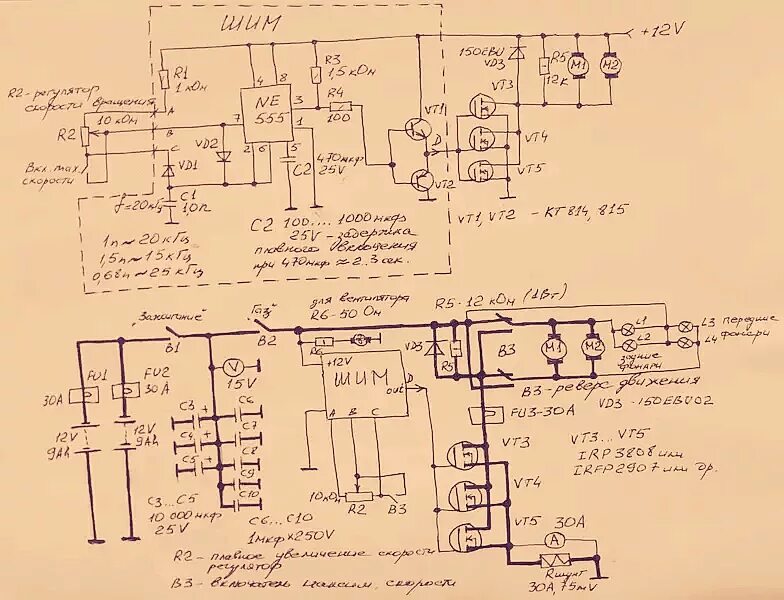 ШИМ
+12V
R1
1 кОм
R3
1,5 кОм
150EBU
VD3
R5
12к
M1
M2
R2-регулятор
скорости вращения
10 кОм
A
R2
B
C
Вкл. max.
скорости
VD1
VD2
4
8
7
NE
555
3
1
2
6
5
R4
100
C2
470мкф
25V
VT1
VT2
D
VT3
VT4
VT5
f=20кГц
C1
1,0п
1п ≈ 20 кГц
1,5п ≈ 15 кГц
0,68п ≈ 25 кГц
C2 100....1000мкф
25V-задержка
плавного включения
при 470мкф ≈ 2.3 сек.
VT1, VT2 - КТ814, 815
"Зажигание"
B1
"Газ"
B2
для вентилятора
R6-50 Ом
R5-12 кОм (1Вт)
FU1
30A
FU2
30A
12V
9Ah
12V
9Ah
V
15V
R6
+12V
ШИМ
out
D
A B C
VD3
R5
B3
M1
M2
L1
L2
задние
фонари
L3
L4
передние
фонари
B3-реверс движения
VD3-150EBU02
FU3-30A
C3
C4
C5
C6
C7
C8
C9
C10
C3...C5
10 000мкф
25V
C6...C10
1мкф×250V
10кОм
R2
B3
VT3
VT4
VT5
VT3...VT5
IRP3808 или
IRFP2907 или др.
30A
A
Rшунт
30A, 75mV
R2-плавное увеличение скорости
регулятор
B3-включатель максим. скорости